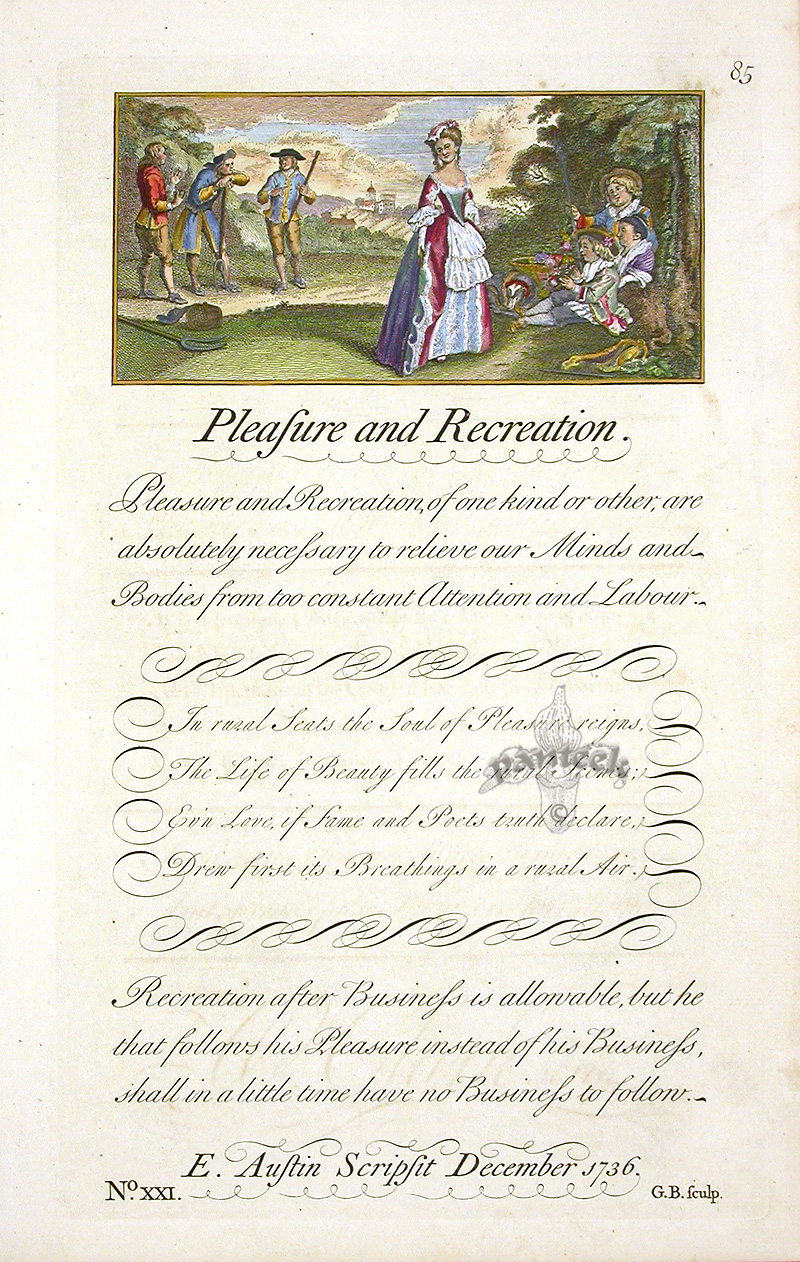 85
Pleaſure and Recreation.
Pleasure and Recreation, of one kind or other, are
absolutely neceſsary to relieve our Minds and
Bodies from too constant Attention and Labour.
In rural Seats the Soul of Pleasure reigns,
The Life of Beauty fills the rural Scenes;
Ev'n Love, if Fame and Poets truth declare,
Drew first its Breathings in a rural Air.
panteek
©
Recreation after Busineſs is allowable, but he
that follows his Pleasure instead of his Busineſs,
shall in a little time have no Busineſs to follow.
E. Auſtin Scripſit December 1736.
No. XXI.
G.B. ſculp.